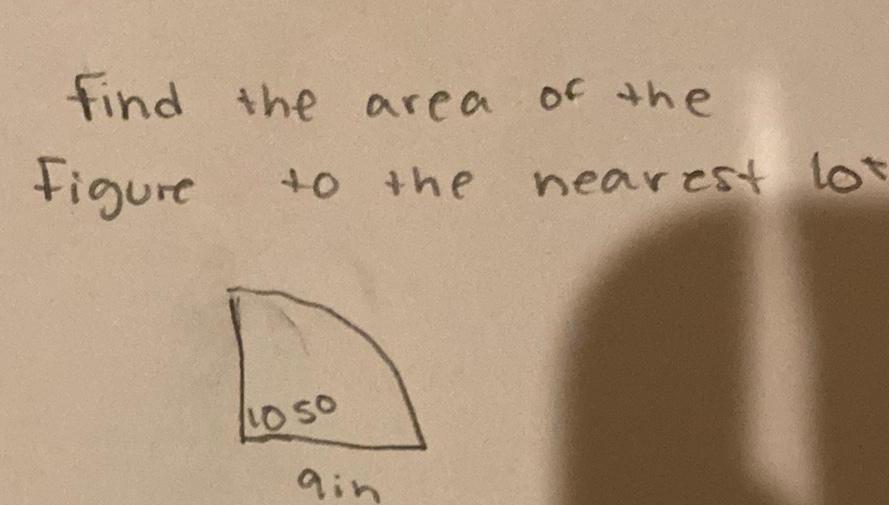 find the area of the
Figure to the nearest
105°
9in